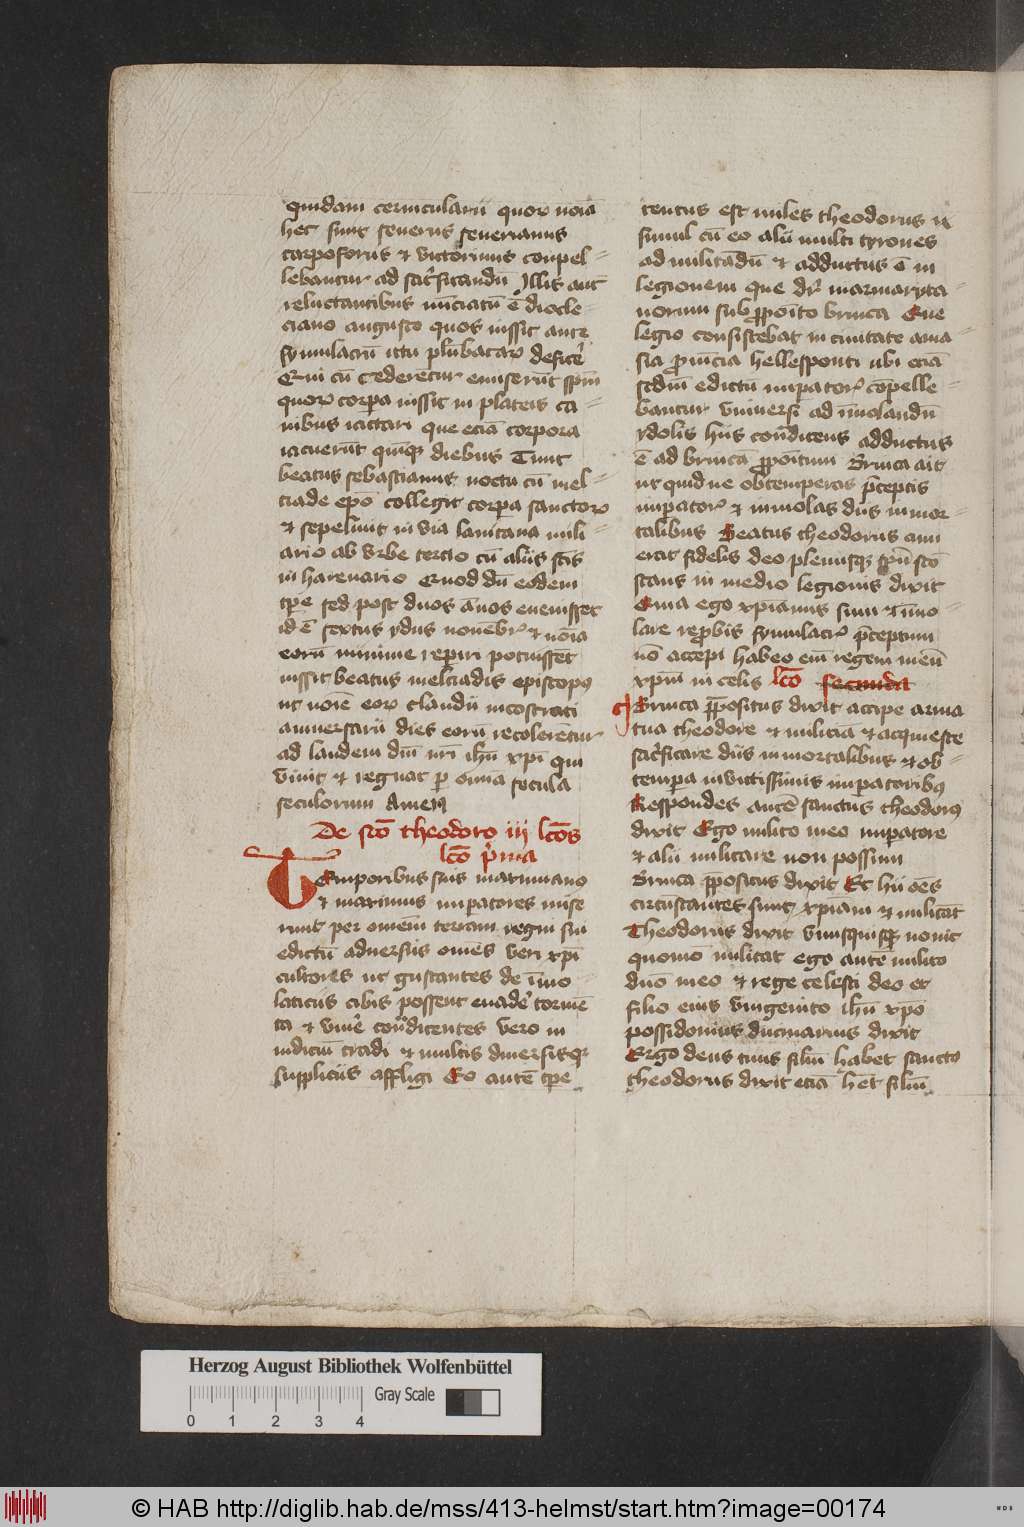 quidam cerniculariū quoꝝ noīa
hec sunt seuerus seuerianus
carpoforus et victorinus conpel-
lebantur ad sacͥficandū Illis autē
reluctantibus nūciatū ē diocle-
ciano augusto quos iussit ante
symulacrū ictu plūbataꝝ deficeͬ
Qui cū cederentur emiserūt spm̄
quoꝝ corpa iussit in plateis ca-
nibus iactari que eciā corpora
iacuerūt quīqꝫ diebus Tunc
beatus sebastianus noctu cū mel-
ciade epō collegit corpa sanctoꝝ
et sepeliuit in via lauitana mili
ario ab vrbe tercio cū aliis scīs
in harenario Quod dū eodem
tpe sed post duos ānos euenisset
id ē sextus ydus nouēbr̄ et noīa
eorū minime reperiri potuissēt
iussit beatus melciadis episcopꝰ
ut noīe eoꝝ claudii nicostrati
anniuersarii dies eorū recolerētur
ad laudem dn̄i nr̄i ihū xpī qui
viuit et regnat p̄ om̄ia secula
seculorum Amen
De scō theodoro iii lcōs
lcō p̄ma
Temporibus suis maximiano
et maximus imperatores mise
runt per omnem terram regni sui
edictū aduersus omēs veri xpī
cultores ut gustantes de īmo-
laticiis cibis possent euadeͬ tormē
ta et viuēͬ conͬdicentes vero in
iudiciū tradi et multis diuersisqꝫ
suppliciis affligi Eo autē tpe
tentus est miles theodorus u
simul cū eo alii multi tyrones
ad militādū et adductus ē in
legionem que dr̄ marmaryta-
norum sub p̄poīto brinca Que
legio consistebat in ciuitate ama
sia prouīcia hellesponti ubi eciā
scdm̄ edictū imperatoꝝ cōpelle-
bantur vniuersi ad īmolandū
ydolis hiis conͬdicens adductus
ē ad brinca p̄poītum Brinca ait
ut quid ne obtemperas p̄ceptis
imperatoꝝ et immolas diis immor-
talibus Beatus theodorus cum
erat fidelis deo plenusqꝫ spū scō
stans in medio legionis dixit
Quia ego xpīanus sum et īmo-
lare reprobis symulacrꝭ p̄ceptum
nō accepi habeo em̄ regem meū
xpm̄ in celis lcō secunda
Brinca p̄positus dixit accipe arma
tua theodore et miliciā et acquiesce
sacͥficare diis immortalibus et ob-
tempera inuictissimis imperatoribꝰ
Respondes autē sanctus theodorꝰ
dixit Ego milito meo imperatore
et alii militare non possum
Brinca p̄positus dixit Et hii oēs
circūstantes sunt xpīani et militāt
Theodorus dixit vnusquisqꝫ nouit
quomō militat ego autē milito
dn̄o meo et rege celesti deo et
filio eius vnigenito ihū xpō
possidonius ducinarius dixit
Ergo deus tuus filiū habet sancto
theodorus dixit eciā hēt filiū
Herzog August Bibliothek Wolfenbüttel
Gray Scale
0 1 2 3 4
© HAB http://diglib.hab.de/mss/413-helmst/start.htm?image=00174